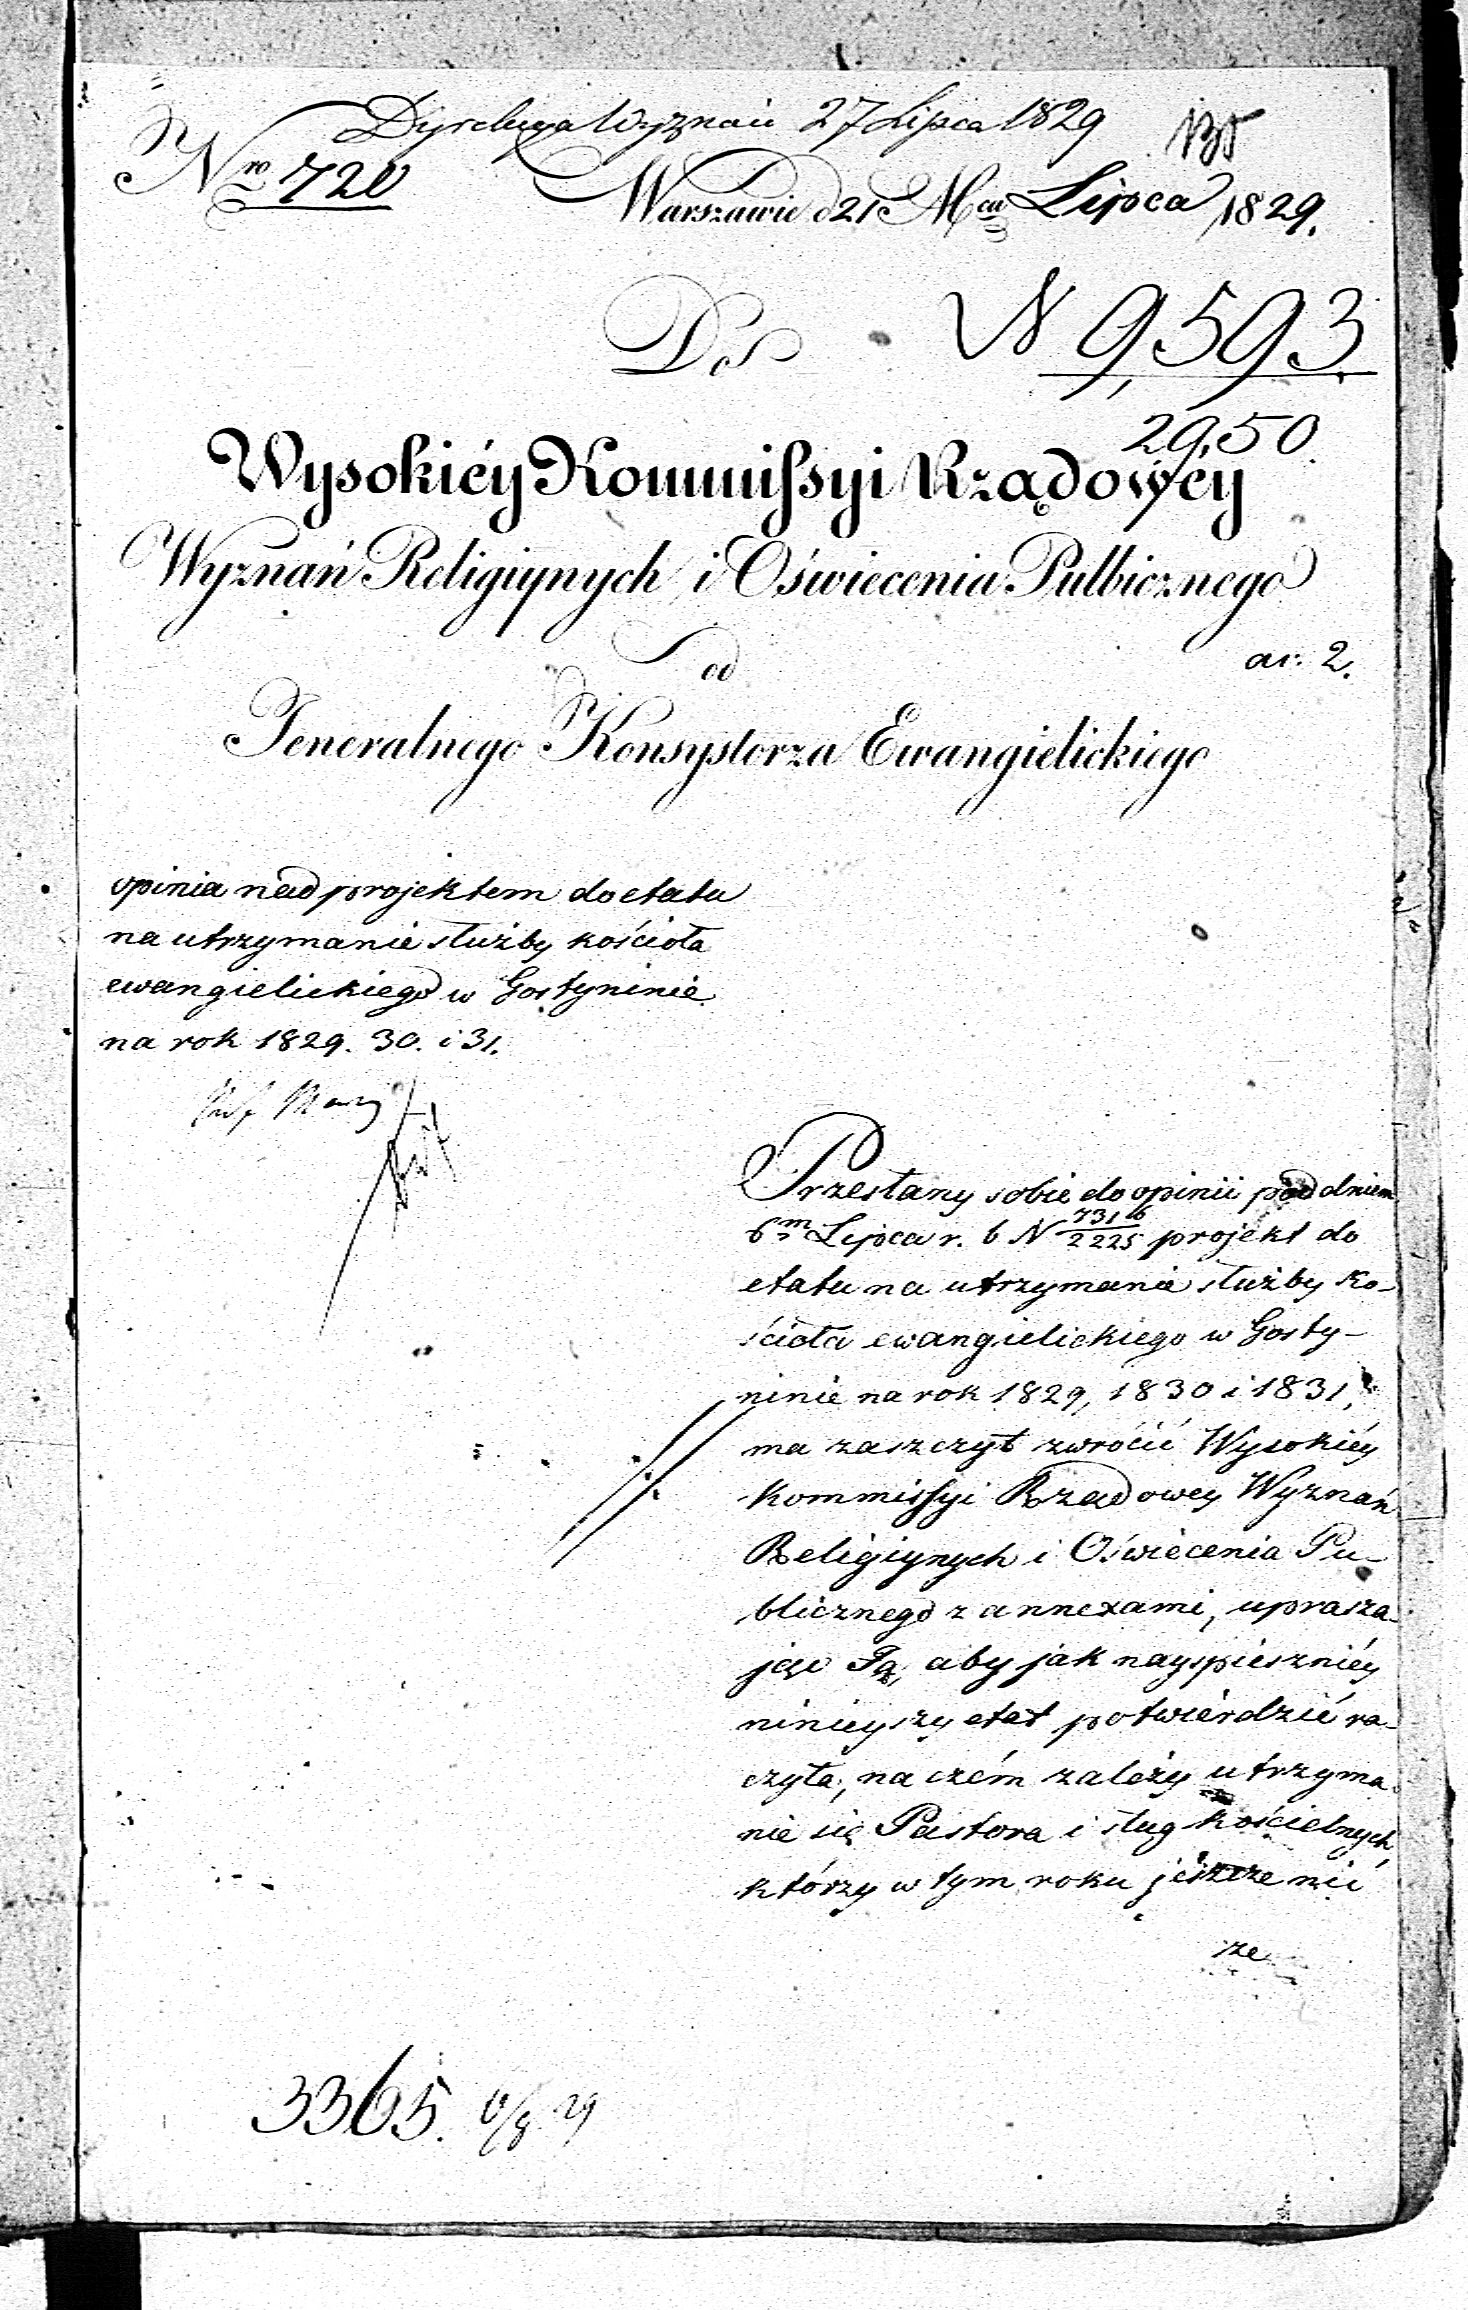 Dyrekcya Wyznań 27 Lipca 1829
Nro 720
Warszawie d 21 Mca Lipca 1829.
Do
N 9,593.
2950.
Wysokiéy Kommissyi Rządowéy
Wyznań Religiynych i Oświecenia Pulbicznego
od
ar. 2.
Jeneralnego Konsystorza Ewangielickiego
opinia nad projektem do etatu
na utrzymanie służby kościoła
ewangielickiego w Gostyninie
na rok 1829. 30. i 31.
Przesłany sobie do opinii pod dniem
6m Lipca r. b N 7316/2225 projekt do
etatu na utrzymanie służby Ko-
ścioła ewangielickiego w Gosty-
ninie na rok 1829, 1830 i 1831,
ma zaszczyt zwrócić Wysokiéy
Kommissyi Rządowey Wyznań
Religiynych i Oświecenia Pu-
blicznego z annexami, uprasza-
jąc Ją, aby jak nayspieszniéy
ninieyszy etat potwierdzić ra-
czyła, na czém zależy utrzyma-
nie się Pastora i sług kościelnych,
którzy w tym roku jeszcze nic
ze
3365. 6/8 29